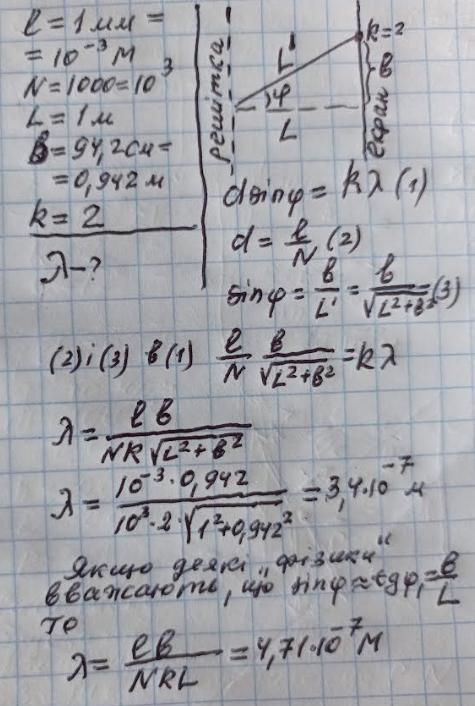 l = 1мм =
= 10⁻³ м
N = 1000 = 10³
L = 1м
в = 94,2см =
= 0,942 м
k = 2
λ - ?
решітка
L'
φ
L
k = 2
в
екран
d sin φ = kλ (1)
d = l/N (2)
sin φ = в/L' = в/√(L²+в²) (3)
(2) і (3) в (1) l/N в/√(L²+в²) = kλ
λ = lв/(Nk√(L²+в²))
λ = 10⁻³·0,942/(10³·2·√(1²+0,942²)) = 3,4·10⁻⁷ м
Якщо деякі "фізики"
вважають, що sin φ ≈ tg φ = в/L
то
λ = lв/(NkL) = 4,71·10⁻⁷ м